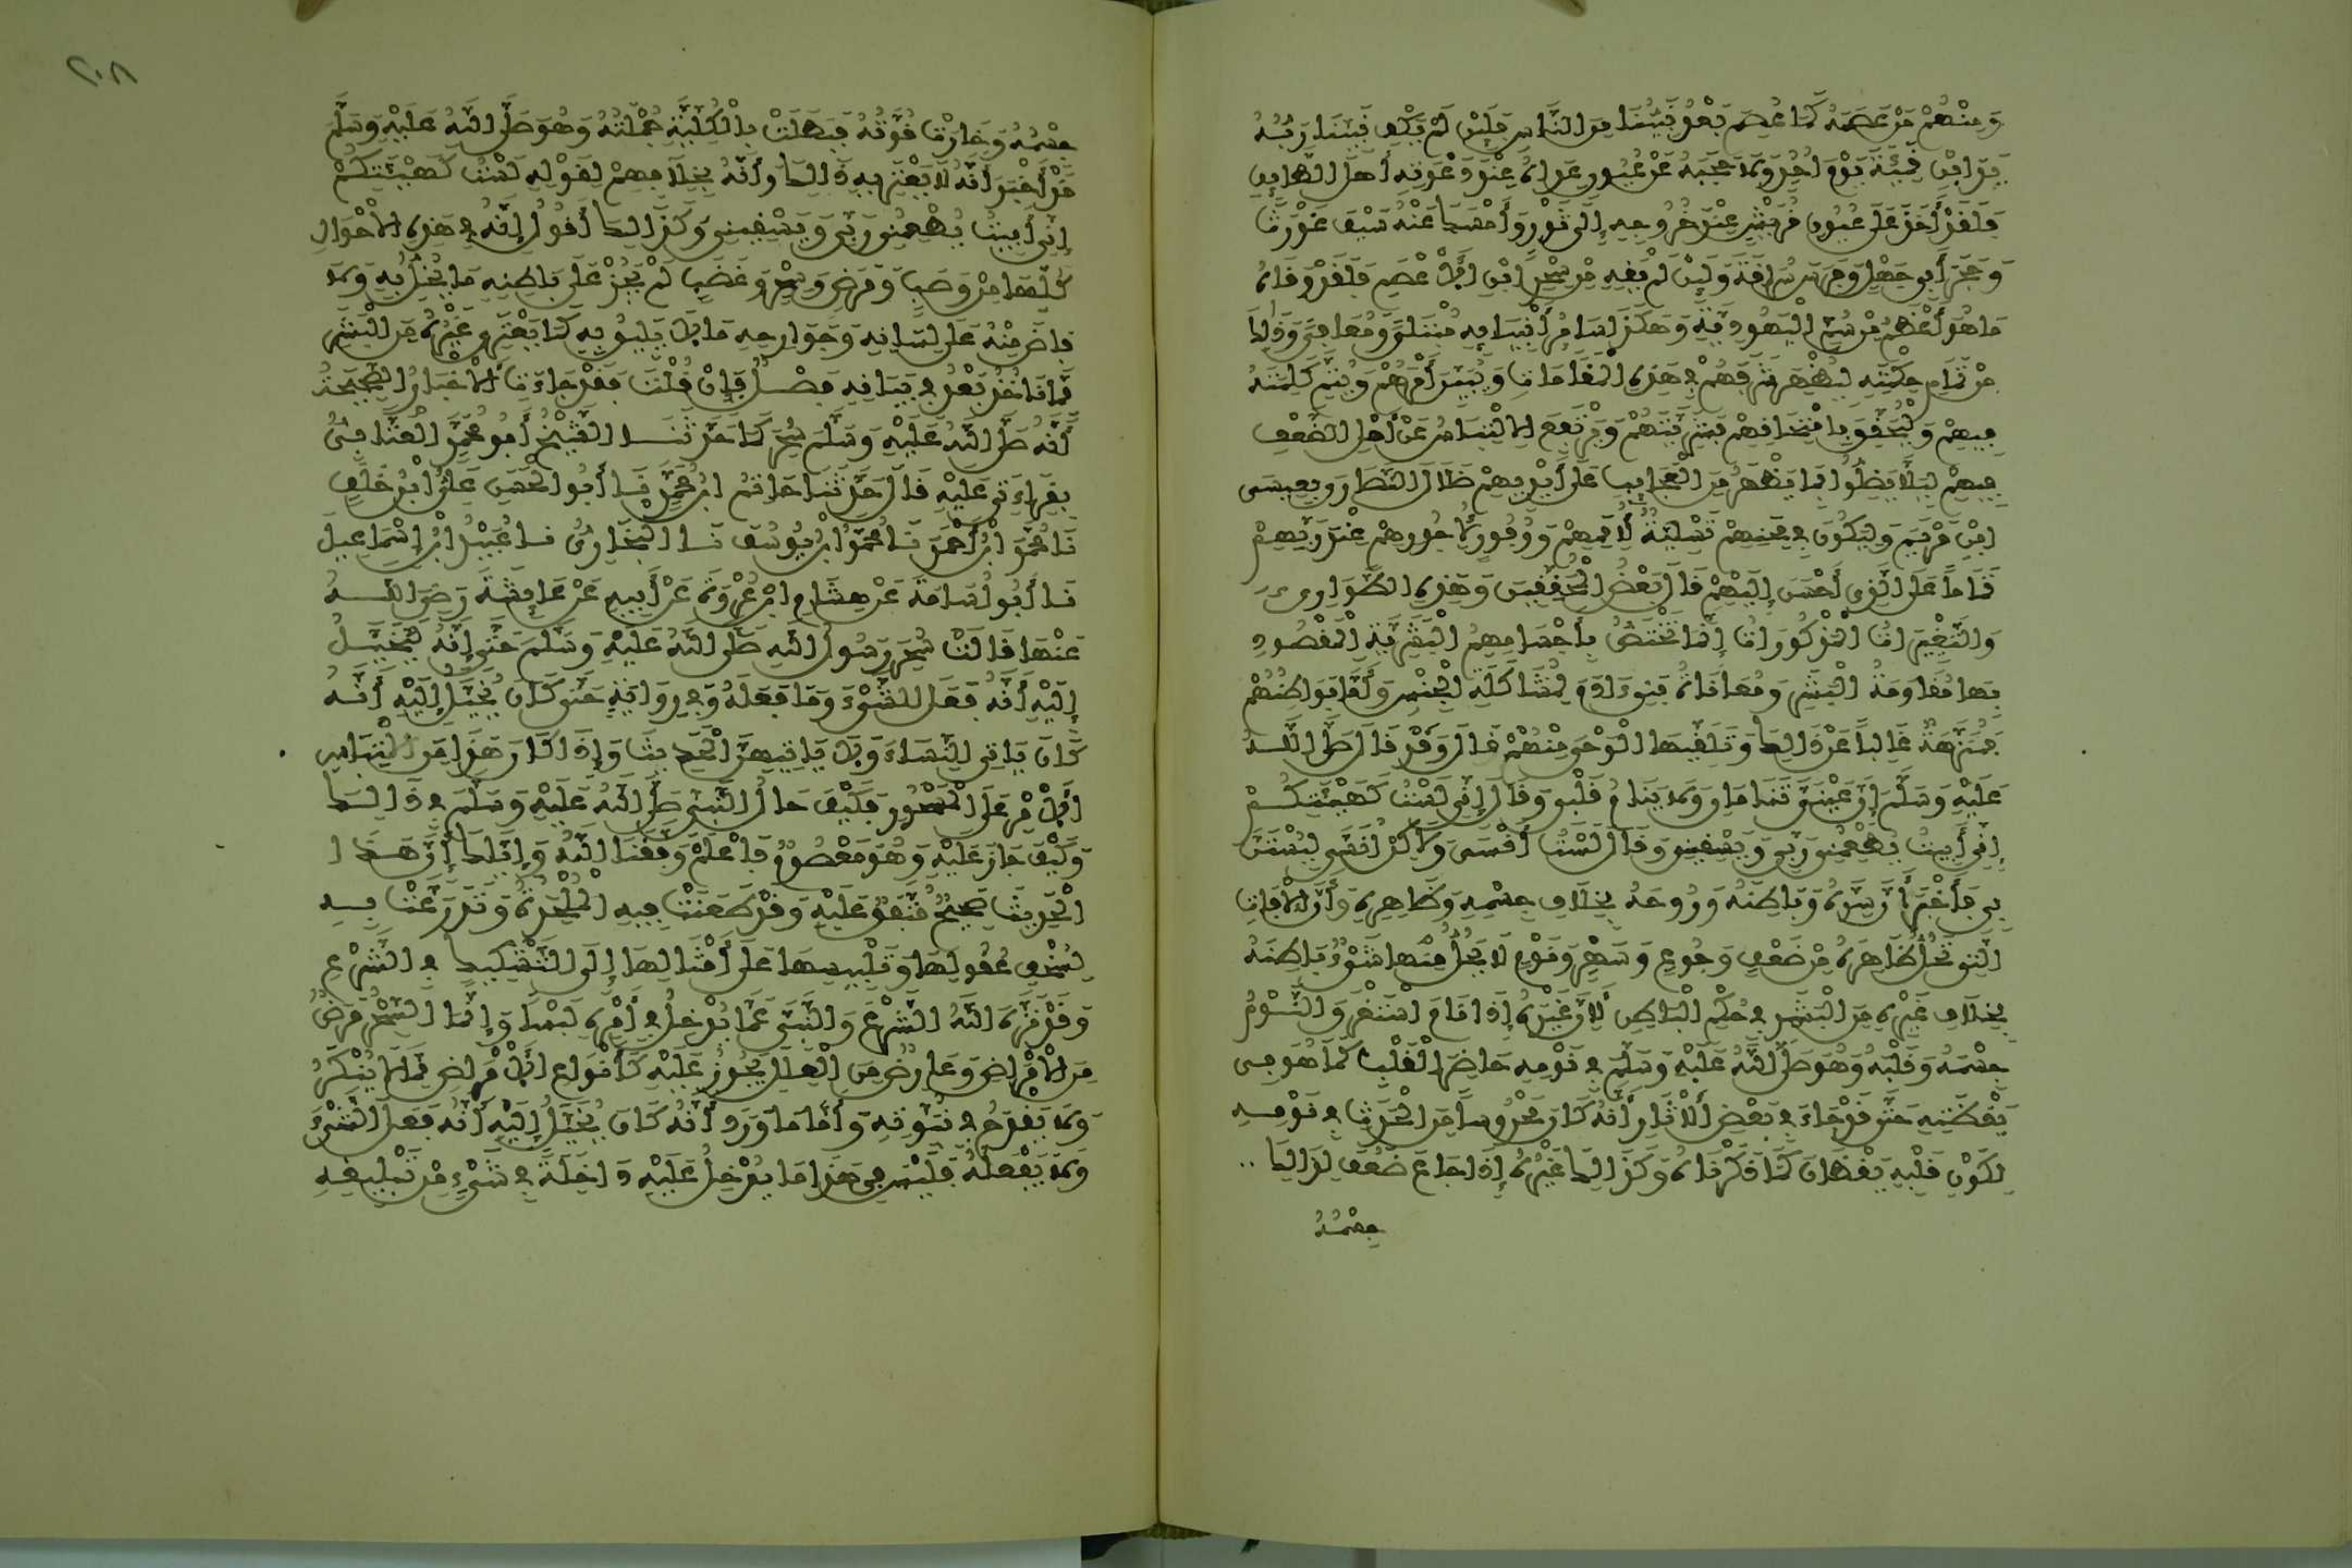 وَمِنْهُمْ مَنْ عَصَمَهُ كَمَا عُصِمَ بَعْدُ نَبِيُّنَا مِنَ النَّاسِ فَلَئِنْ لَمْ يَكْفِ نَبِيَّنَا رَبُّهُ
يَدَ ابْنِ قَمِئَةَ يَوْمَ أُحُدٍ وَلَا حَجَبَهُ عَنْ عُيُونِ عِدَاهُ عِنْدَ دَعْوَتِهِ أَهْلَ الطَّائِفِ
فَلَقَدْ أَخَذَ عَلَى عُيُونِ قُرَيْشٍ عِنْدَ خُرُوجِهِ إِلَى ثَوْرٍ وَأَمْسَكَ عَنْهُ سَيْفَ غَوْرَثٍ
وَحَجَرَ أَبِي جَهْلٍ وَفَرَسَ سُرَاقَةَ وَلَئِنْ لَمْ يَقِهِ مِنْ سِحْرِ ابْنِ الْأَعْصَمِ فَلَقَدْ وَقَاهُ
مَا هُوَ أَعْظَمُ مِنْ سُمِّ الْيَهُودِيَّةِ وَهَكَذَا سَائِرُ أَنْبِيَائِهِ مُبْتَلًى وَمُعَافًى وَذَلِكَ
مِنْ تَمَامِ حِكْمَتِهِ لِيُظْهِرَ شَرَفَهُمْ فِي هَذِهِ الْمَقَامَاتِ وَيُبَيِّنَ أَمْرَهُمْ وَيُتِمَّ كَلِمَتَهُ
فِيهِمْ وَلِيُحَقِّقَ بِامْتِحَانِهِمْ بَشَرِيَّتَهُمْ وَيَرْتَفِعَ الِالْتِبَاسُ عَنْ أَهْلِ الضَّعْفِ
فِيهِمْ لِئَلَّا يَضِلُّوا بِمَا يَظْهَرُ مِنَ الْعَجَائِبِ عَلَى أَيْدِيهِمْ ضَلَالَ النَّصَارَى بِعِيسَى
ابْنِ مَرْيَمَ وَلِيَكُونَ فِي مِحَنِهِمْ تَسْلِيَةٌ لِأُمَمِهِمْ وَوُفُورٌ لِأُجُورِهِمْ عِنْدَ رَبِّهِمْ
تَمَامًا عَلَى الَّذِي أَحْسَنَ إِلَيْهِمْ قَالَ بَعْضُ الْمُحَقِّقِينَ وَهَذِهِ الطَّوَارِي
وَالتَّغْيِيرَاتُ الْمَذْكُورَاتُ إِنَّمَا تَخْتَصُّ بِأَجْسَامِهِمُ الْبَشَرِيَّةِ الْمَقْصُودِ
بِهَا مُقَاوَمَةُ الْبَشَرِ وَمُعَانَاةُ بَنِي ءَادَمَ لِمُشَاكَلَةِ الْجِنْسِ وَأَمَّا بَوَاطِنُهُمْ
فَمُنَزَّهَةٌ غَالِبًا عَنْ ذَلِكَ وَتَلَقِّيهَا الْوَحْيَ مِنْهُمْ قَالَ وَقَدْ قَالَ صَلَّى اللَّهُ
عَلَيْهِ وَسَلَّمَ إِنَّ عَيْنَيَّ تَنَامَانِ وَلَا يَنَامُ قَلْبِي وَقَالَ إِنِّي لَسْتُ كَهَيْئَتِكُمْ
إِنِّي أَبِيتُ يُطْعِمُنِي رَبِّي وَيَسْقِينِي وَقَالَ لَسْتُ أَنْسَى وَلَاكِنْ أُنَسَّى لِيُسْتَنَّ
بِي فَأَخْبَرَ أَنَّ سِرَّهُ وَبَاطِنَهُ وَرُوحَهُ بِخِلَافِ جِسْمِهِ وَظَاهِرِهِ وَأَنَّ الْآفَاتِ
الَّتِي تَحُلُّ ظَاهِرَهُ مِنْ ضَعْفٍ وَجُوعٍ وَسَهَرٍ وَنَوْمٍ لَا يَحُلُّ مِنْهَا شَيْءٌ بَاطِنَهُ
بِخِلَافِ غَيْرِهِ مِنَ الْبَشَرِ فِي حُكْمِ الْبَاطِنِ لِأَنَّ غَيْرَهُ إِذَا نَامَ اسْتَغْرَقَ النَّوْمُ
جِسْمَهُ وَقَلْبَهُ وَهُوَ صَلَّى اللَّهُ عَلَيْهِ وَسَلَّمَ فِي نَوْمِهِ حَاضِرُ الْقَلْبِ كَمَا هُوَ فِي
يَقْظَتِهِ حَتَّى قَدْ جَاءَ فِي بَعْضِ الْآثَارِ أَنَّهُ كَانَ مَحْرُوسًا مِنَ الْحَدَثِ فِي نَوْمِهِ
لِكَوْنِ قَلْبِهِ يَقْظَانَ كَمَا ذَكَرْنَاهُ وَكَذَلِكَ غَيْرُهُ إِذَا جَاعَ ضَعُفَ لِذَلِكَ ..
جِسْمُهُ
٢٠٨
جِسْمُهُ وَخَارَتْ قُوَّتُهُ فَبَطَلَتْ بِالْكُلِّيَّةِ جُمْلَتُهُ وَهُوَ صَلَّى اللَّهُ عَلَيْهِ وَسَلَّمَ
قَدْ أَخْبَرَ أَنَّهُ لَا يَعْتَرِيهِ ذَلِكَ وَأَنَّهُ بِخِلَافِهِمْ لِقَوْلِهِ لَسْتُ كَهَيْئَتِكُمْ
إِنِّي أَبِيتُ يُطْعِمُنِي رَبِّي وَيَسْقِينِي وَكَذَلِكَ أَقُولُ إِنَّهُ فِي هَذِهِ الْأَحْوَالِ
كُلِّهَا مِنْ وَصَبٍ وَمَرَضٍ وَسِحْرٍ وَغَضَبٍ لَمْ يَجُزْ عَلَى بَاطِنِهِ مَا يُخِلُّ بِهِ وَلَا
فَاضَ مِنْهُ عَلَى لِسَانِهِ وَجَوَارِحِهِ مَا لَا يَلِيقُ بِهِ كَمَا يَعْتَرِي غَيْرَهُ مِنَ الْبَشَرِ
مِمَّا نَاخُذُ بَعْدُ فِي بَيَانِهِ فَصْلٌ فَإِنْ قُلْتَ فَقَدْ جَاءَتِ الْأَخْبَارُ الصَّحِيحَةُ
أَنَّهُ صَلَّى اللَّهُ عَلَيْهِ وَسَلَّمَ سُحِرَ كَمَا حَدَّثَنَا الشَّيْخُ أَبُو مُحَمَّدٍ الْعَتَّابِيُّ
بِقِرَاءَتِي عَلَيْهِ قَالَ حَدَّثَنَا حَاتِمُ ابْنُ مُحَمَّدٍ نَا أَبُو الْحَسَنِ عَلِيُّ ابْنُ خَلَفٍ
نَا مُحَمَّدُ ابْنُ أَحْمَدَ نَا مُحَمَّدُ ابْنُ يُوسُفَ نَا الْبُخَارِيُّ نَا عُبَيْدُ ابْنُ إِسْمَاعِيلَ
نَا أَبُو أُسَامَةَ عَنْ هِشَامِ ابْنِ عُرْوَةَ عَنْ أَبِيهِ عَنْ عَائِشَةَ رَضِيَ اللَّهُ
عَنْهَا قَالَتْ سُحِرَ رَسُولُ اللَّهِ صَلَّى اللَّهُ عَلَيْهِ وَسَلَّمَ حَتَّى إِنَّهُ لَيُخَيَّلُ
إِلَيْهِ أَنَّهُ فَعَلَ الشَّيْءَ وَمَا فَعَلَهُ وَفِي رِوَايَةٍ حَتَّى كَانَ يُخَيَّلُ إِلَيْهِ أَنَّهُ
كَانَ يَاتِي النِّسَاءَ وَلَا يَاتِيهِنَّ الْحَدِيثَ وَإِذَا كَانَ هَذَا مِنَ الْتِبَاسِ
الْأَمْرِ عَلَى الْمَسْحُورِ فَكَيْفَ حَالُ النَّبِيِّ صَلَّى اللَّهُ عَلَيْهِ وَسَلَّمَ فِي ذَلِكَ
وَكَيْفَ جَازَ عَلَيْهِ وَهُوَ مَعْصُومٌ فَاعْلَمْ وَفَّقَنَا اللَّهُ وَإِيَّاكَ أَنَّ هَذَا
الْحَدِيثَ صَحِيحٌ مُتَّفَقٌ عَلَيْهِ وَقَدْ طَعَنَتْ فِيهِ الْمُلْحِدَةُ وَتَذَرَّعَتْ بِهِ
لِسُخْفِ عُقُولِهَا وَتَلْبِيسِهَا عَلَى أَمْثَالِهَا إِلَى التَّشْكِيكِ فِي الشَّرْعِ
وَقَدْ نَزَّهَ اللَّهُ الشَّرْعَ وَالنَّبِيَّ عَمَّا يُدْخِلُ فِي أَمْرِهِ لَبْسًا وَإِنَّمَا السِّحْرُ مَرَضٌ
مِنَ الْأَمْرَاضِ وَعَارِضٌ مِنَ الْعِلَلِ يَجُوزُ عَلَيْهِ كَأَنْوَاعِ الْأَمْرَاضِ مِمَّا لَا يُنْكَرُ
وَلَا يَقْدَحُ فِي نُبُوَّتِهِ وَأَمَّا مَا وَرَدَ أَنَّهُ كَانَ يُخَيَّلُ إِلَيْهِ أَنَّهُ فَعَلَ الشَّيْءَ
وَلَا يَفْعَلُهُ فَلَيْسَ فِي هَذَا مَا يُدْخِلُ عَلَيْهِ دَاخِلَةً فِي شَيْءٍ مِنْ تَبْلِيغِهِ